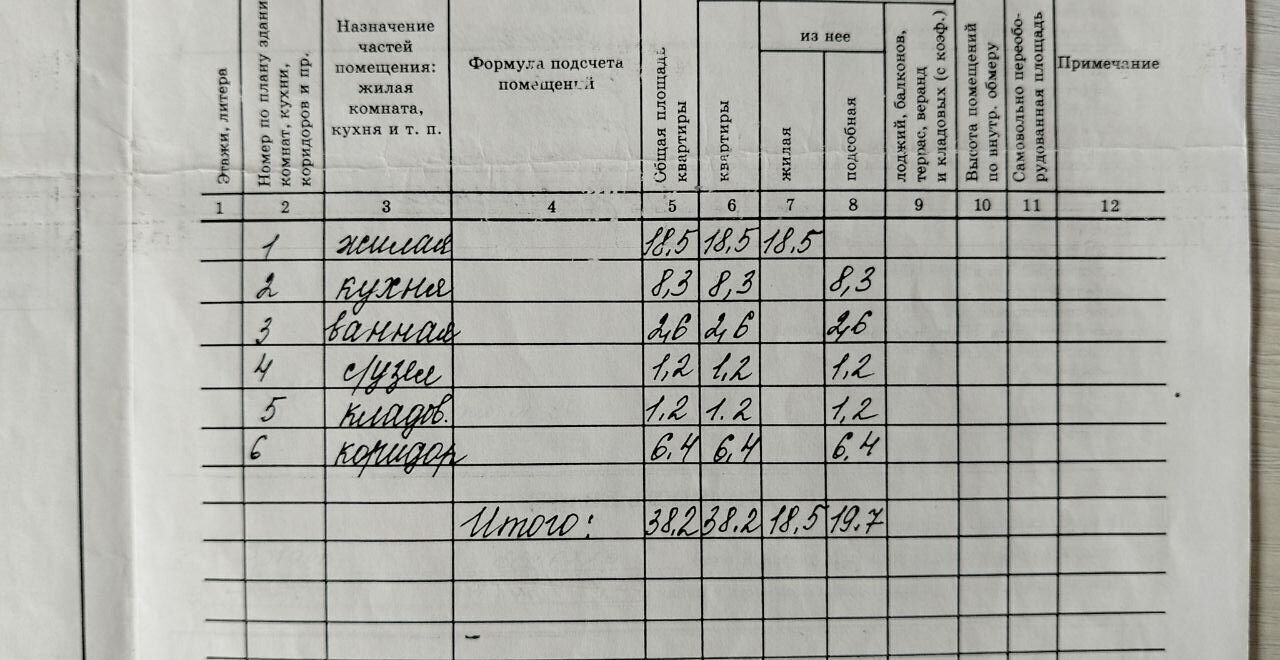 Этажи, литера
Номер по плану здания
комнат, кухни,
коридоров и пр.
Назначение
частей
помещения:
жилая
комната,
кухня и т. п.
Формула подсчета
помещений
Общая площадь
квартиры
квартиры
из нее
жилая
подсобная
лоджий, балконов,
террас, веранд
и кладовых (с коэф.)
Высота помещений
по внутр. обмеру
Самовольно переобо-
рудованная площадь
Примечание
1 2 3 4 5 6 7 8 9 10 11 12
1 жилая 18,5 18,5 18,5
2 кухня 8,3 8,3 8,3
3 ванная 2,6 2,6 2,6
4 с/узел 1,2 1,2 1,2
5 кладов. 1,2 1.2 1,2
6 коридор 6,4 6,4 6.4
Итого: 38,2 38.2 18,5 19.7